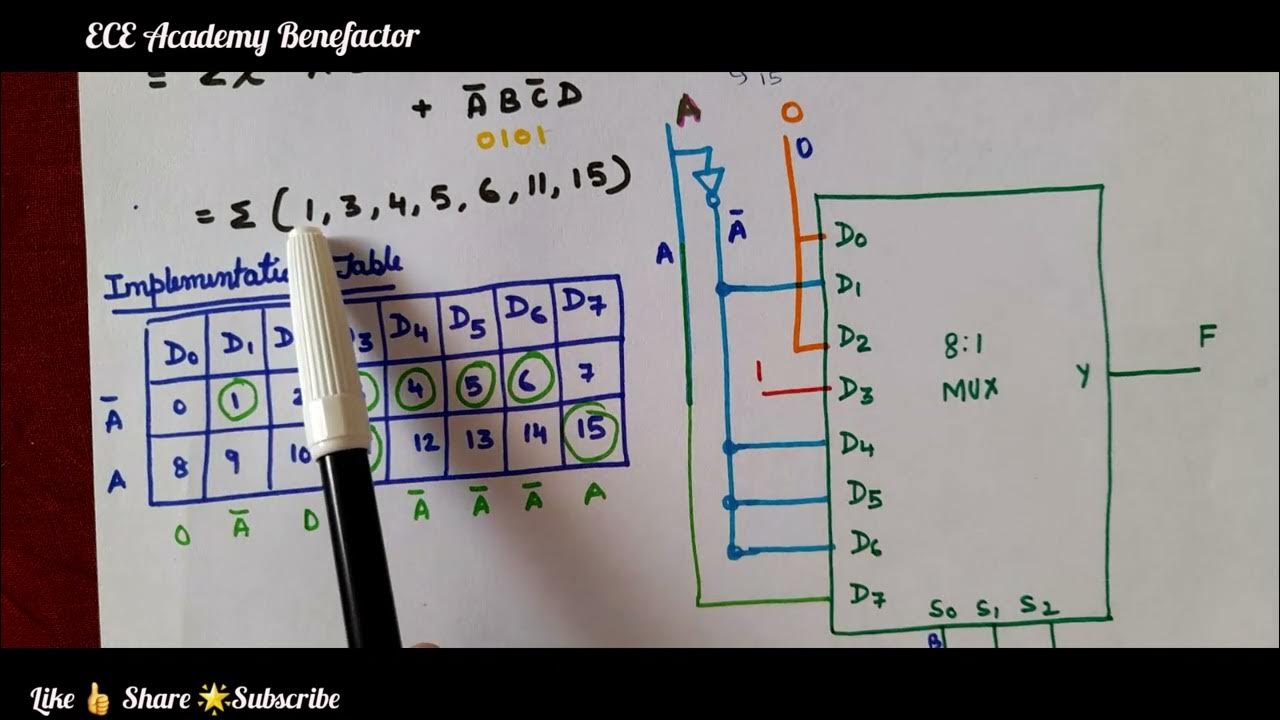 ECE Academy Benefactor
+ A̅ B C̅ D
0101
= Σ (1, 3, 4, 5, 6, 11, 15)
Table
D0 D1 D4 D5 D6 D7
A̅ 0 1 4 5 6 7
A 8 9 10 12 13 14 15
0 A̅ 0 A̅ A̅ A̅ A
15
A
0
0
A̅
A
1
D0
D1
D2
D3
D4
D5
D6
D7
8:1
MUX
Y
F
S0 S1 S2
B
Like 👍 Share 🌟Subscribe